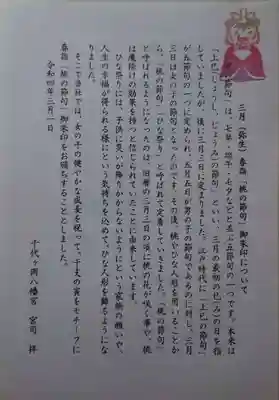 三月(弥生)春詣「桃の節句」御朱印について
「桃の節句」は、七草・端午・七夕などと並ぶ五節句の一つです。本来は
「上巳(じょうし、じょうみ)の節句」といい、三月の最初の巳(み)の日を指
していましたが、後に三月三日に定まりました。江戸時代に「上巳の節句」
が五節句の一つに定められ、五月五日が男の子の節句であるのに対し、三月
三日は女の子の節句となったのです。その後、桃やひな人形を用いることか
ら、「桃の節句」「ひな祭り」と呼ばれて定着していきました。「桃の節句」
と呼ばれるようになったのは、旧暦の三月三日の頃に桃の花が咲く事や、桃
は魔除けの効果を持つと信じられていたことに由来しています。
ひな祭りには、子供に災いが降りかからないようにという家族の願いや、
人生の幸福が得られる様にという気持ちを込めて、ひな人形を飾るようにな
りました。
そこで当社では、女の子の健やかな成長を祝って、干支の寅をモチーフに
春詣「桃の節句」御朱印をお頒ちすることとしました。
令和四年三月一日
千代ヶ岡八幡宮 宮司 拝